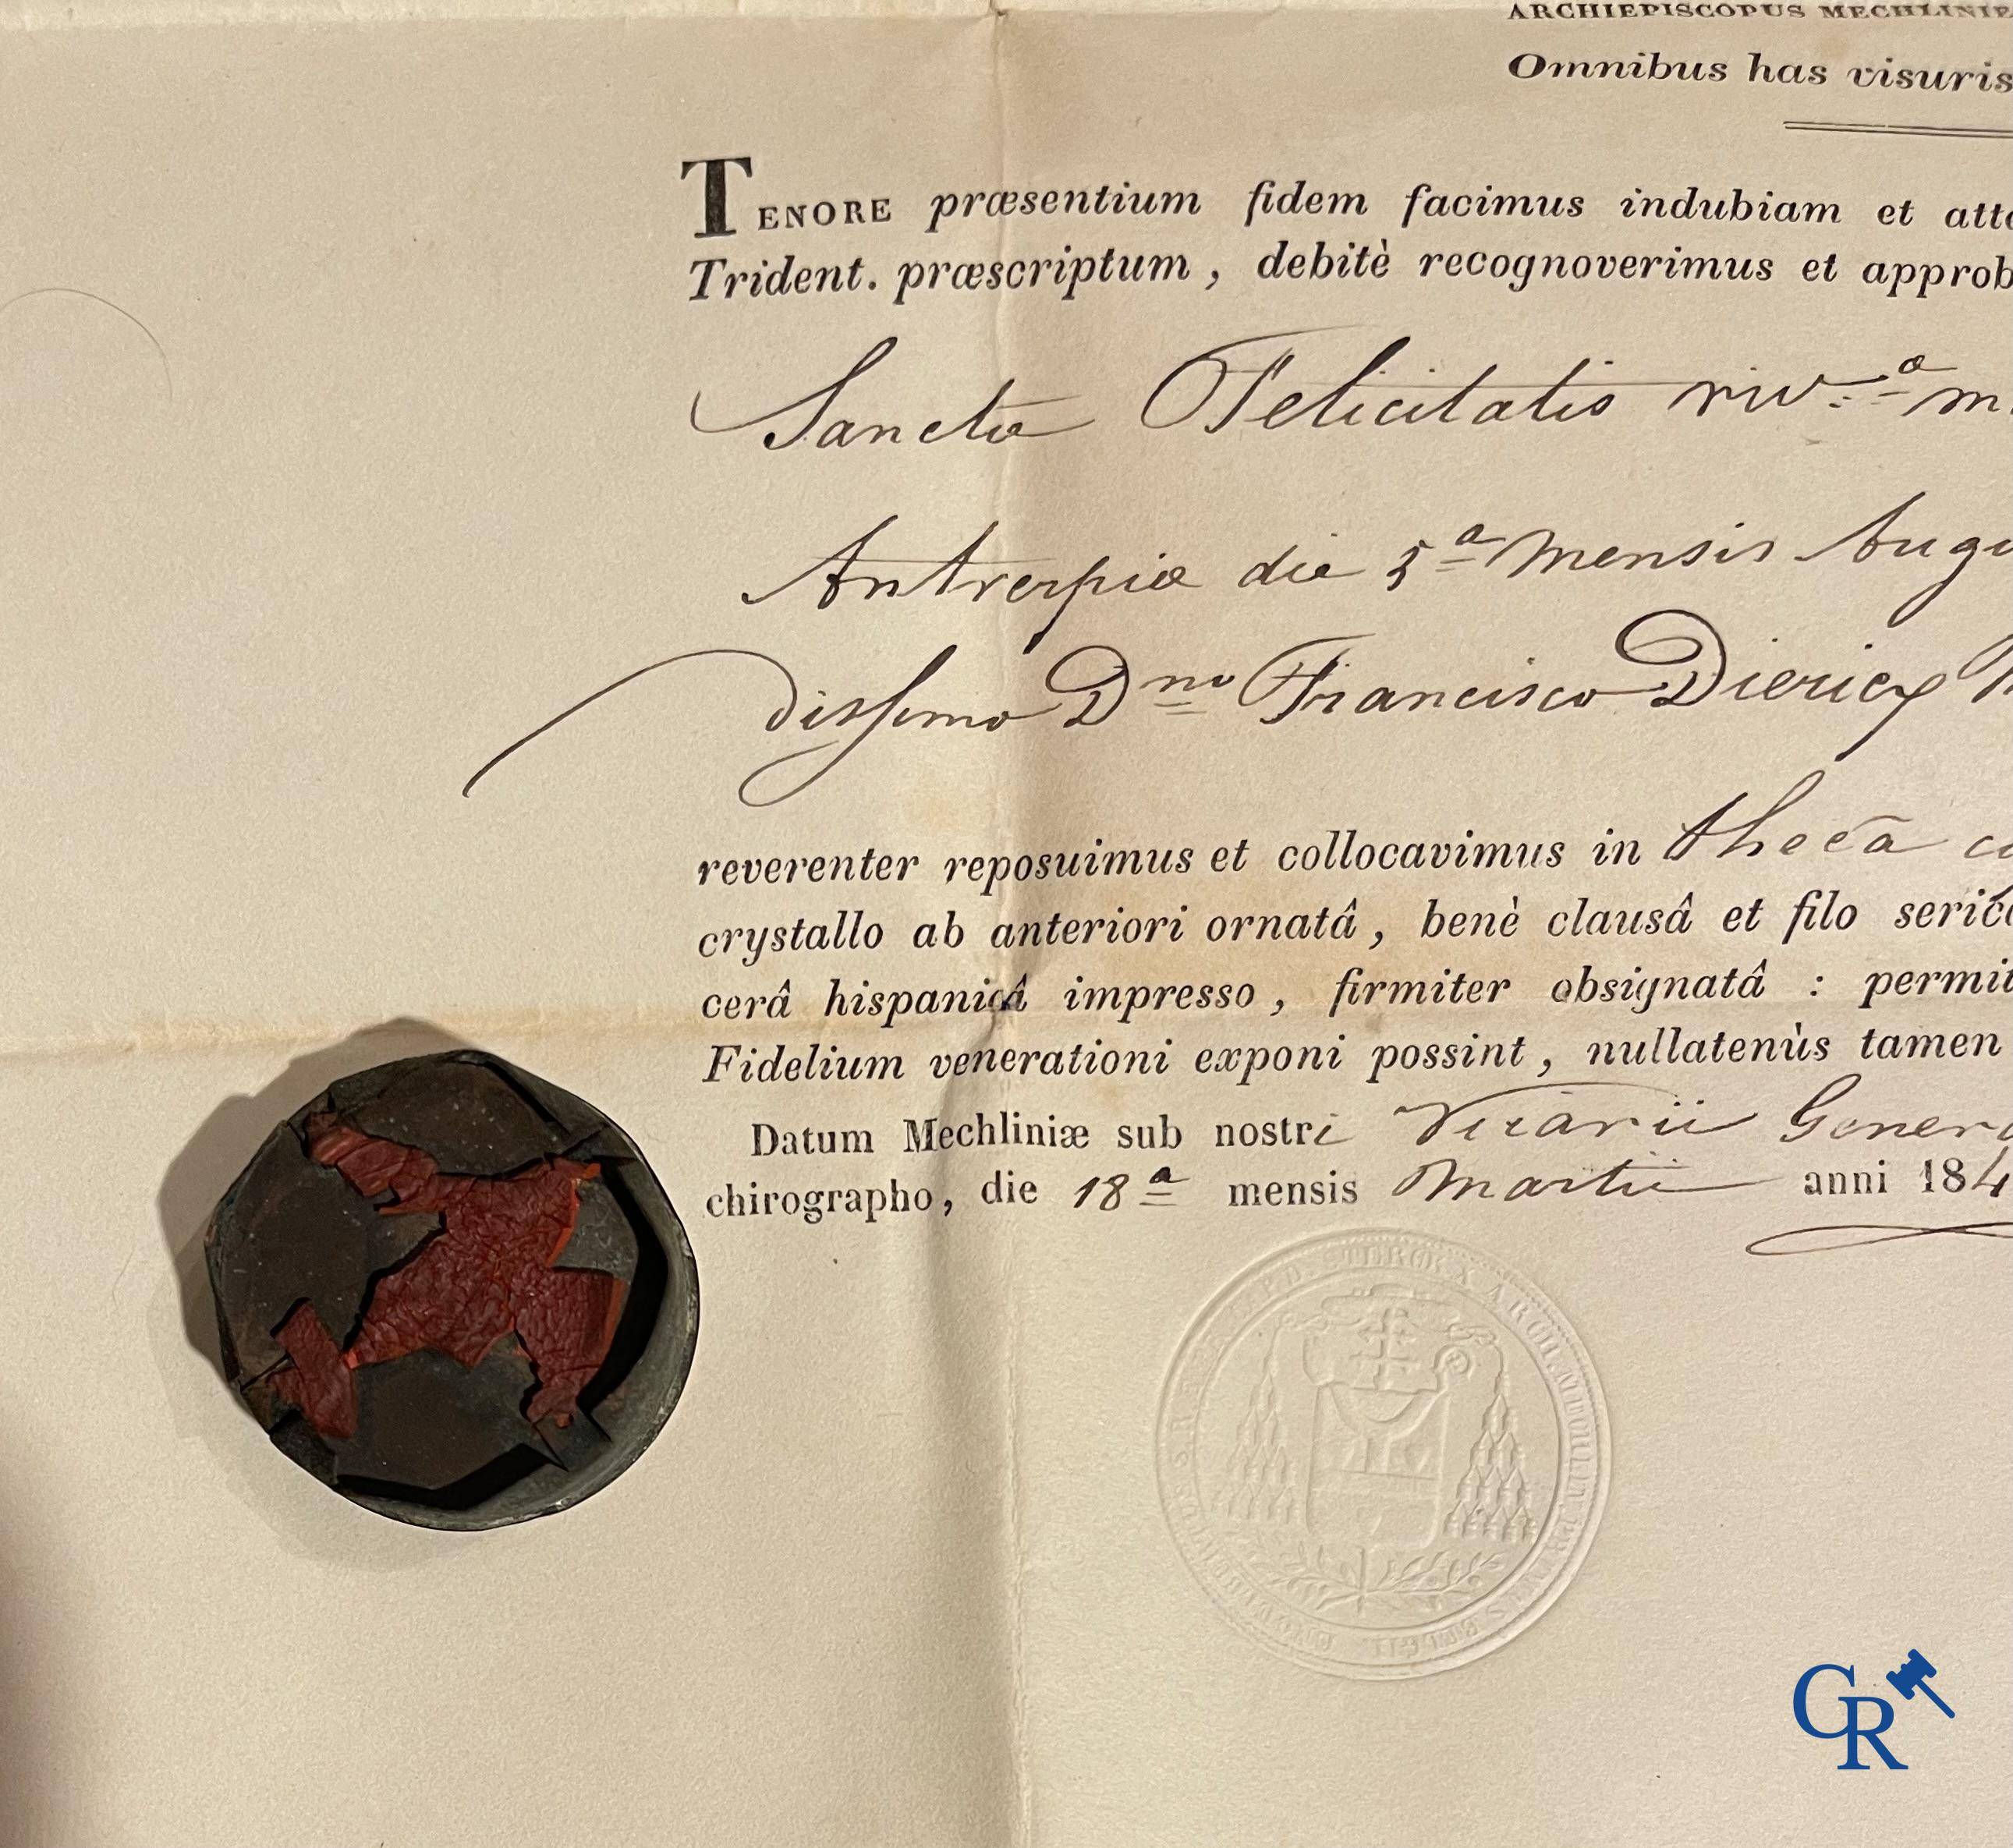 ARCHIEPISCOPUS MECHLINIE
Omnibus has visuris
TENORE præsentium fidem facimus indubiam et atte
Trident. præscriptum, debitè recognoverimus et approb
Sanctæ Felicitatis m.
Antverpiæ die 5ª mensis Augu
dissimo Dno Francisco Diericx
reverenter reposuimus et collocavimus in thecâ
crystallo ab anteriori ornatâ, benè clausâ et filo serico
cerâ hispanicâ impresso, firmiter obsignatâ : permit
Fidelium venerationi exponi possint, nullatenùs tamen
Datum Mechliniæ sub nostri Vicarii Genera
chirographo, die 18ª mensis Martii anni 184
CR